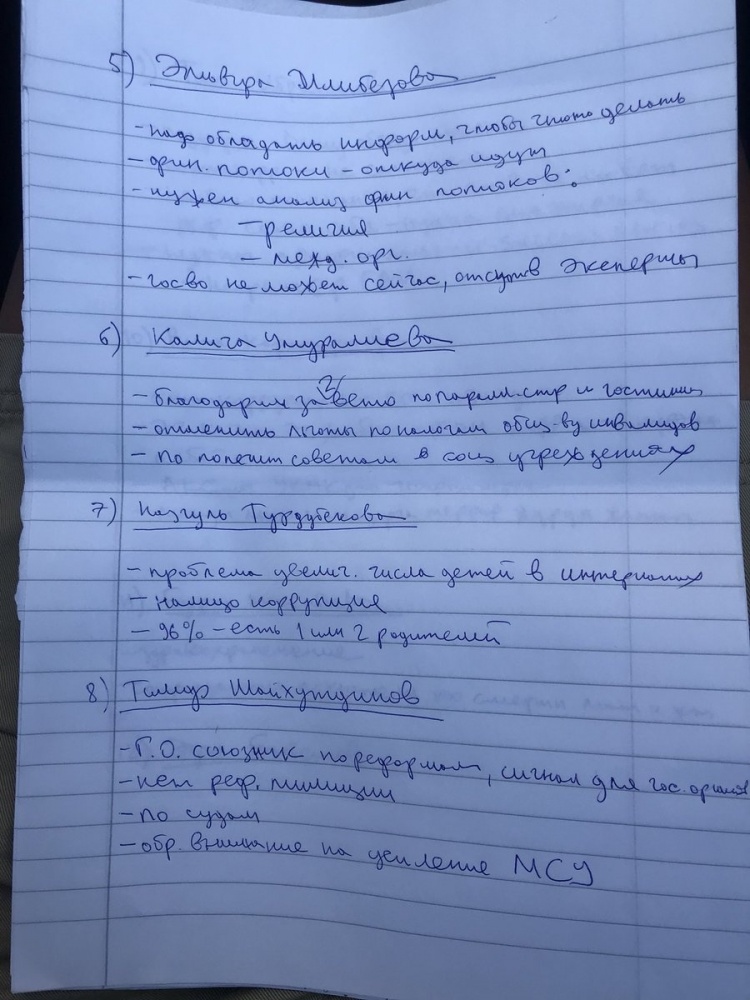 5) Эльвира
- надо обладать информ, чтобы что-то делать
- фин. потоки – откуда идут
- нужен анализ фин потоков:
– религия
– межд. орг.
- госво не может сейчас, отсутв эксперты
6) Калича Умуралиева
- благодарим за 2 вето по паралл.стр и гостиниц
- отменить льготы по налогам общ-ву инвалидов
- по попечит советам в соц учреждениях
7) Назгуль Турдубекова
- проблема увелич. числа детей в интернатах
- налицо коррупция
- 96% – есть 1 или 2 родителей
8) Тимур Шайхутдинов
- Г.О. союзник по реформам, сигнал для гос. органов
- нет реф. милиции
- по судам
- обр. внимание на усиление МСУ